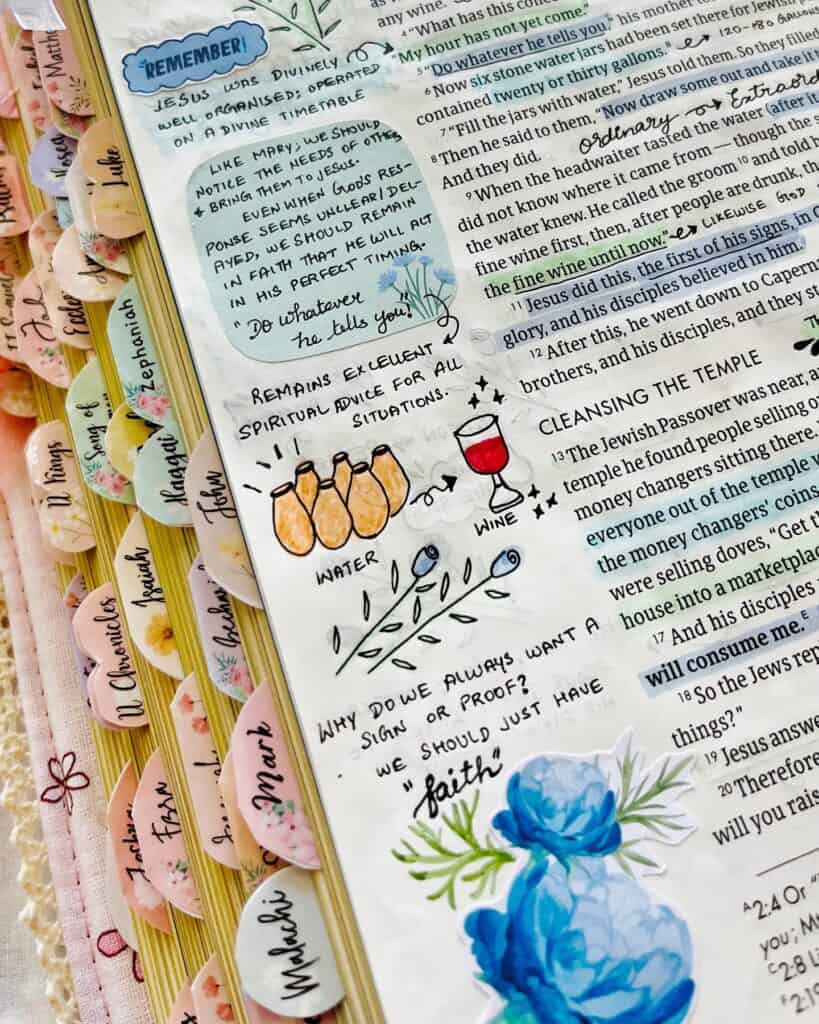 REMEMBER!
JESUS WAS DIVINELY
WELL ORGANISED; OPERATED
ON A DIVINE TIMETABLE
LIKE MARY; WE SHOULD
NOTICE THE NEEDS OF OTHERS
& BRING THEM TO JESUS.
EVEN WHEN GOD'S RES-
PONSE SEEMS UNCLEAR/DEL-
AYED, WE SHOULD REMAIN
IN FAITH THAT HE WILL ACT
IN HIS PERFECT TIMING.
"Do whatever
he tells you!"
REMAINS EXCELLENT
SPIRITUAL ADVICE FOR ALL
SITUATIONS.
WATER
WINE
WHY DO WE ALWAYS WANT A
SIGN OR PROOF?
WE SHOULD JUST HAVE
"faith"
any wine.
4 "What has this
My hour has not yet come."
5 "Do whatever he tells you," his mother
6 Now six stone water jars had been set there for Jewish
contained twenty or thirty gallons."
120-180 GALLONS
7 "Fill the jars with water," Jesus told them. So they filled
8 Then he said to them, "Now draw some out and take it
And they did.
ordinary → Extraord
9 When the headwaiter tasted the water (after it
did not know where it came from — though the
the water knew. He called the groom 10 and told
fine wine first, then, after people are drunk, the
the fine wine until now."
LIKEWISE GOD
11 Jesus did this, the first of his signs, in
glory, and his disciples believed in him.
12 After this, he went down to
brothers, and his disciples, and they
CLEANSING THE TEMPLE
13 The Jewish Passover was near,
temple he found people selling
money changers sitting there.
everyone out of the temple
the money changers' coins
were selling doves, "Get
house into a marketplace
17 And his disciples
will consume me. E
18 So the Jews
things?"
19 Jesus
20 Therefore
will you
A 2:4 Or
you;
C 2:8
E 2:19
Luke
Hosea
Zephaniah
Song of
Haggai
II Kings
John
Isaiah
II Chronicles
Mark
Joshua
Ezra
Malachi